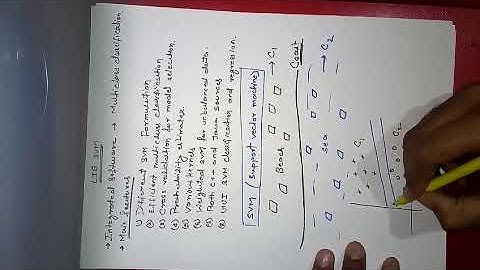 LIB SVM
→ Integrated Software → Multiclass classification
→ Main features
1) Different SVM Formulation
(2) Efficient multiclass classification
(3) Cross validation for model selection.
(4) Probability estimates.
(5) Various kernels
(6) Weighted SVM for unbalanced data.
(7) Both C++ and Java sources
(8) GUI SVM classification and regression.
SVM (support vector machine)
→ C1
Beach
Coast
sea
→ C2
C1
C2